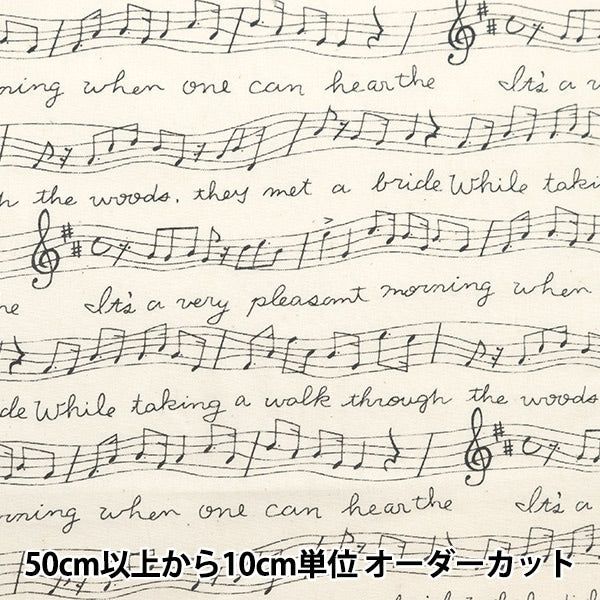 ning when one can hear the It's a v
h the woods, they met a bride While taki
ne It's a very pleasamt morning when
de While taking a walk through the woods
rning when one can hear the It's a
50cm以上から10cm単位 オーダーカット